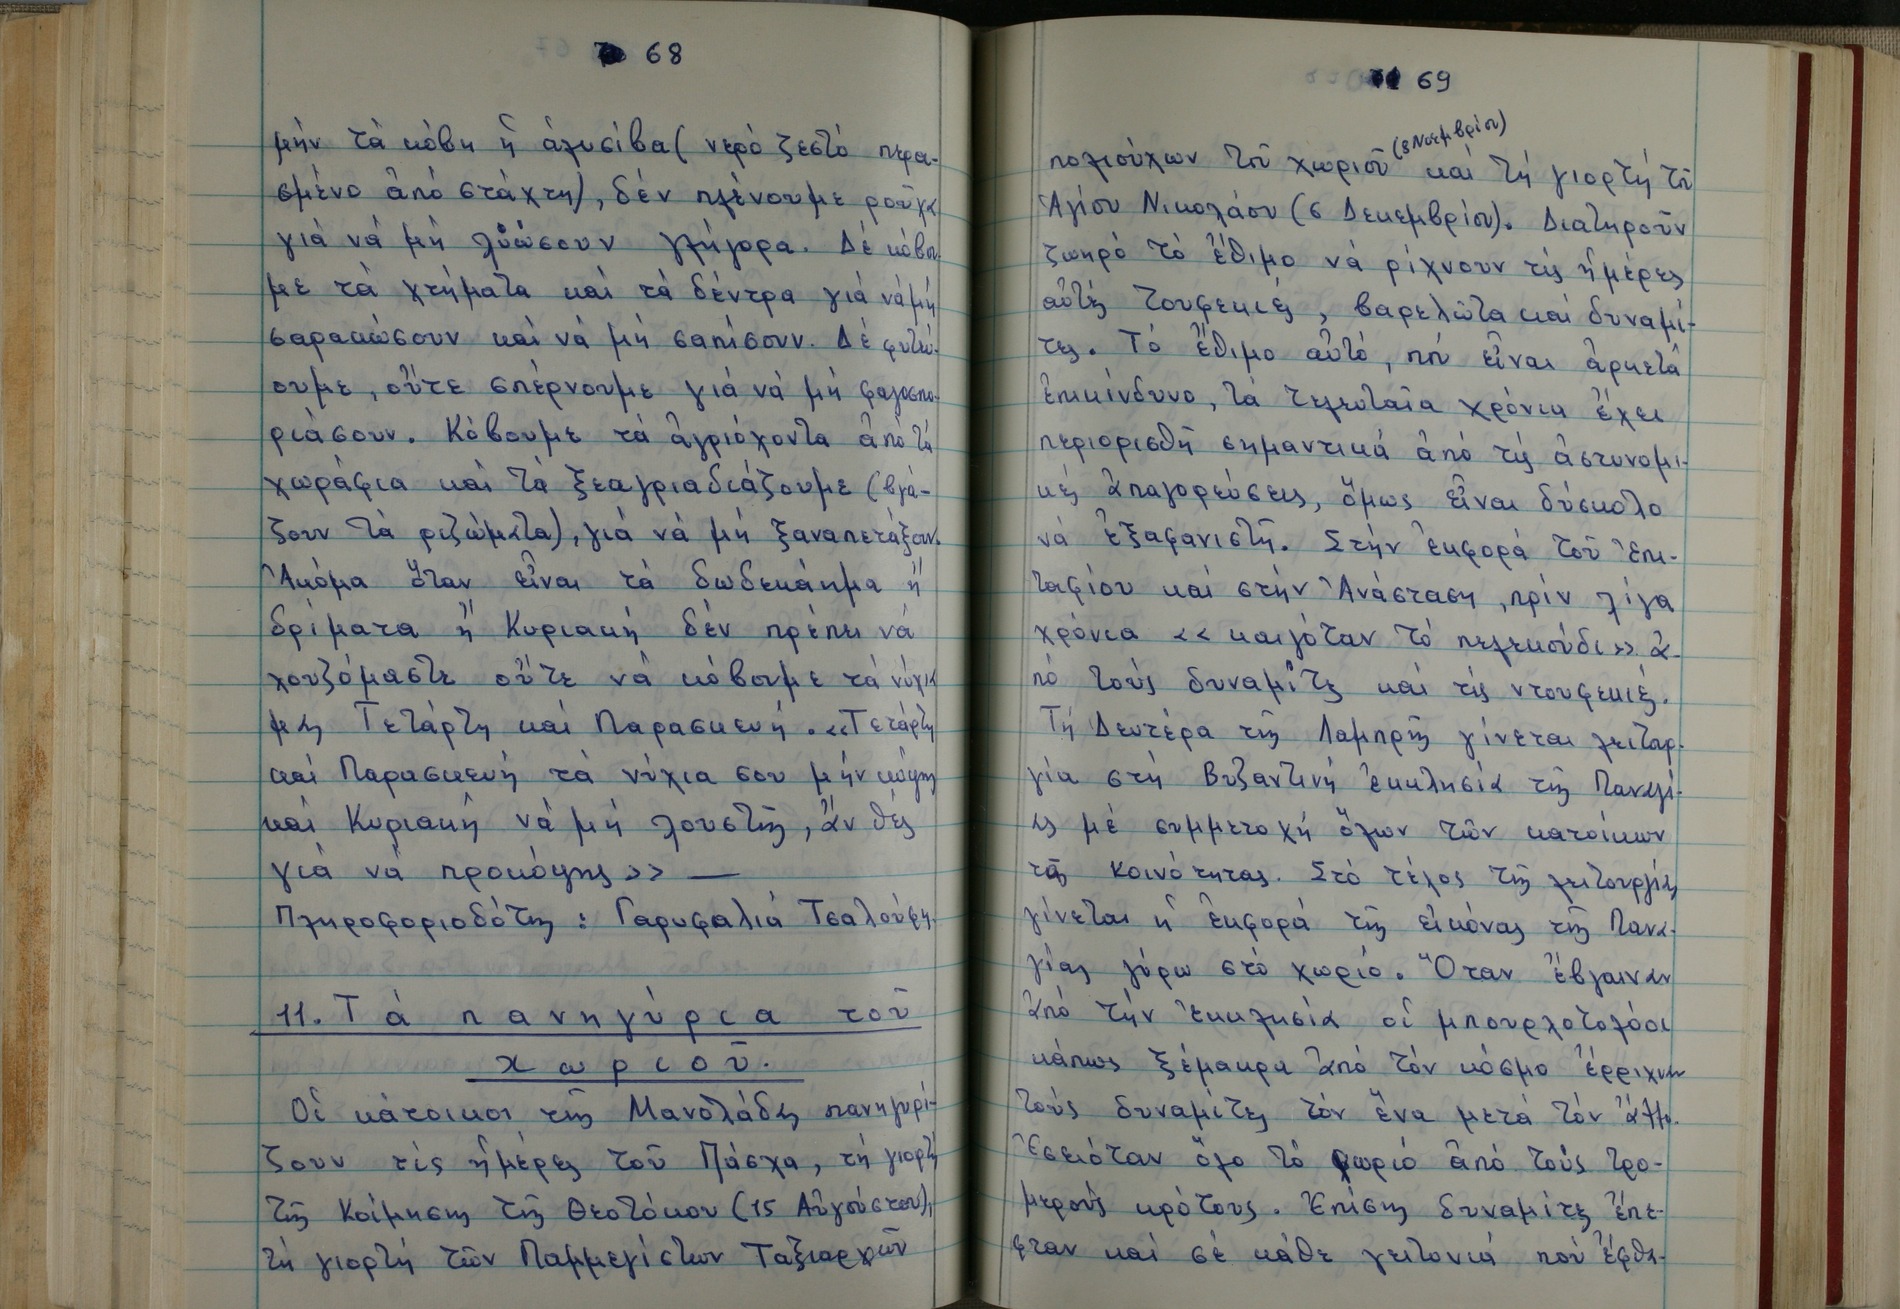 68
μήν τά κόβη ἡ ἀλυσίβα (νερό ζεστό περα-
σμένο ἀπό στάχτη), δέν πλένουμε ροῦχα
γιά νά μή λυώσουν γλήγορα. Δέ κόβου
με τά χτήματα καί τά δέντρα γιά νά μή
σαρακώσουν καί νά μή σαπίσουν. Δέ φυτεύ-
ουμε, οὔτε σπέρνουμε γιά νά μή φαγοσπο-
ριάσουν. Κόβουμε τά ἀγριόχοντα ἀπό τά
χωράφια καί τά ξεαγριαδιάζουμε (βγά-
ζουν τά ριζώματα), γιά νά μή ξαναπετάξουν.
Ἀκόμα ὅταν εἶναι τά δωδεκάημα ἤ
δρίματα ἤ Κυριακή δέν πρέπει νά
λουζόμαστε οὔτε νά κόβουμε τά νύχια
μας Τετάρτη καί Παρασκευή. «Τετάρτη
καί Παρασκευή τά νύχια σου μήν κόψης
καί Κυριακή νά μή λουστῆς, ἄν θές
γιά νά προκόψης» —
Πληροφοριοδότης: Γαρυφαλιά Τσαλούφη.
11. Τά πανηγύρια τοῦ
χωριοῦ.
Οἱ κάτοικοι τῆς Μανολάδας πανηγυρί-
ζουν τίς ἡμέρες τοῦ Πάσχα, τή γιορτή
τῆς Κοίμησης τῆς Θεοτόκου (15 Αὐγούστου),
τή γιορτή τῶν Παμμεγίστων Ταξιαρχῶν
69
(8 Νοεμβρίου)
πολιούχων τοῦ χωριοῦ καί τή γιορτή τοῦ
Ἁγίου Νικολάου (6 Δεκεμβρίου). Διατηροῦν
ζωηρό τό ἔθιμο νά ρίχνουν τίς ἡμέρες
αὐτές τουφεκιές, βαρελῶτα καί δυναμί-
τες. Τό ἔθιμο αὐτό, πού εἶναι ἀρκετά
ἐπικίνδυνο, τά τελευταῖα χρόνια ἔχει
περιορισθῆ σημαντικά ἀπό τίς ἀστυνομι-
κές ἀπαγορεύσεις, ὅμως εἶναι δύσκολο
νά ἐξαφανιστῆ. Στήν ἐκφορά τοῦ Ἐπι-
ταφίου καί στήν Ἀνάσταση, πρίν λίγα
χρόνια «καιγόταν τό πελεκούδι» ἀ-
πό τούς δυναμίτες καί τίς ντουφεκιές.
Τή Δευτέρα τῆς Λαμπρῆς γίνεται λειτουρ-
γία στή Βυζαντινή ἐκκλησία τῆς Παναγί-
ας μέ συμμετοχή ὅλων τῶν κατοίκων
τῆς Κοινότητας. Στό τέλος τῆς λειτουργίας
γίνεται ἡ ἐκφορά τῆς εἰκόνας τῆς Πανα-
γίας γύρω στό χωριό. Ὅταν ἔβγαιναν
ἀπό τήν ἐκκλησία οἱ μπουρλοτολόοι
κάπως ξέμακρα ἀπό τόν κόσμο ἔρριχναν
τούς δυναμίτες τόν ἕνα μετά τόν ἄλλο.
Ἐσειόταν ὅλο τό χωριό ἀπό τούς τρο-
μερούς κρότους. Ἐπίσης δυναμίτες ἔπε-
φταν καί σέ κάθε γειτονιά πού ἔφθα-